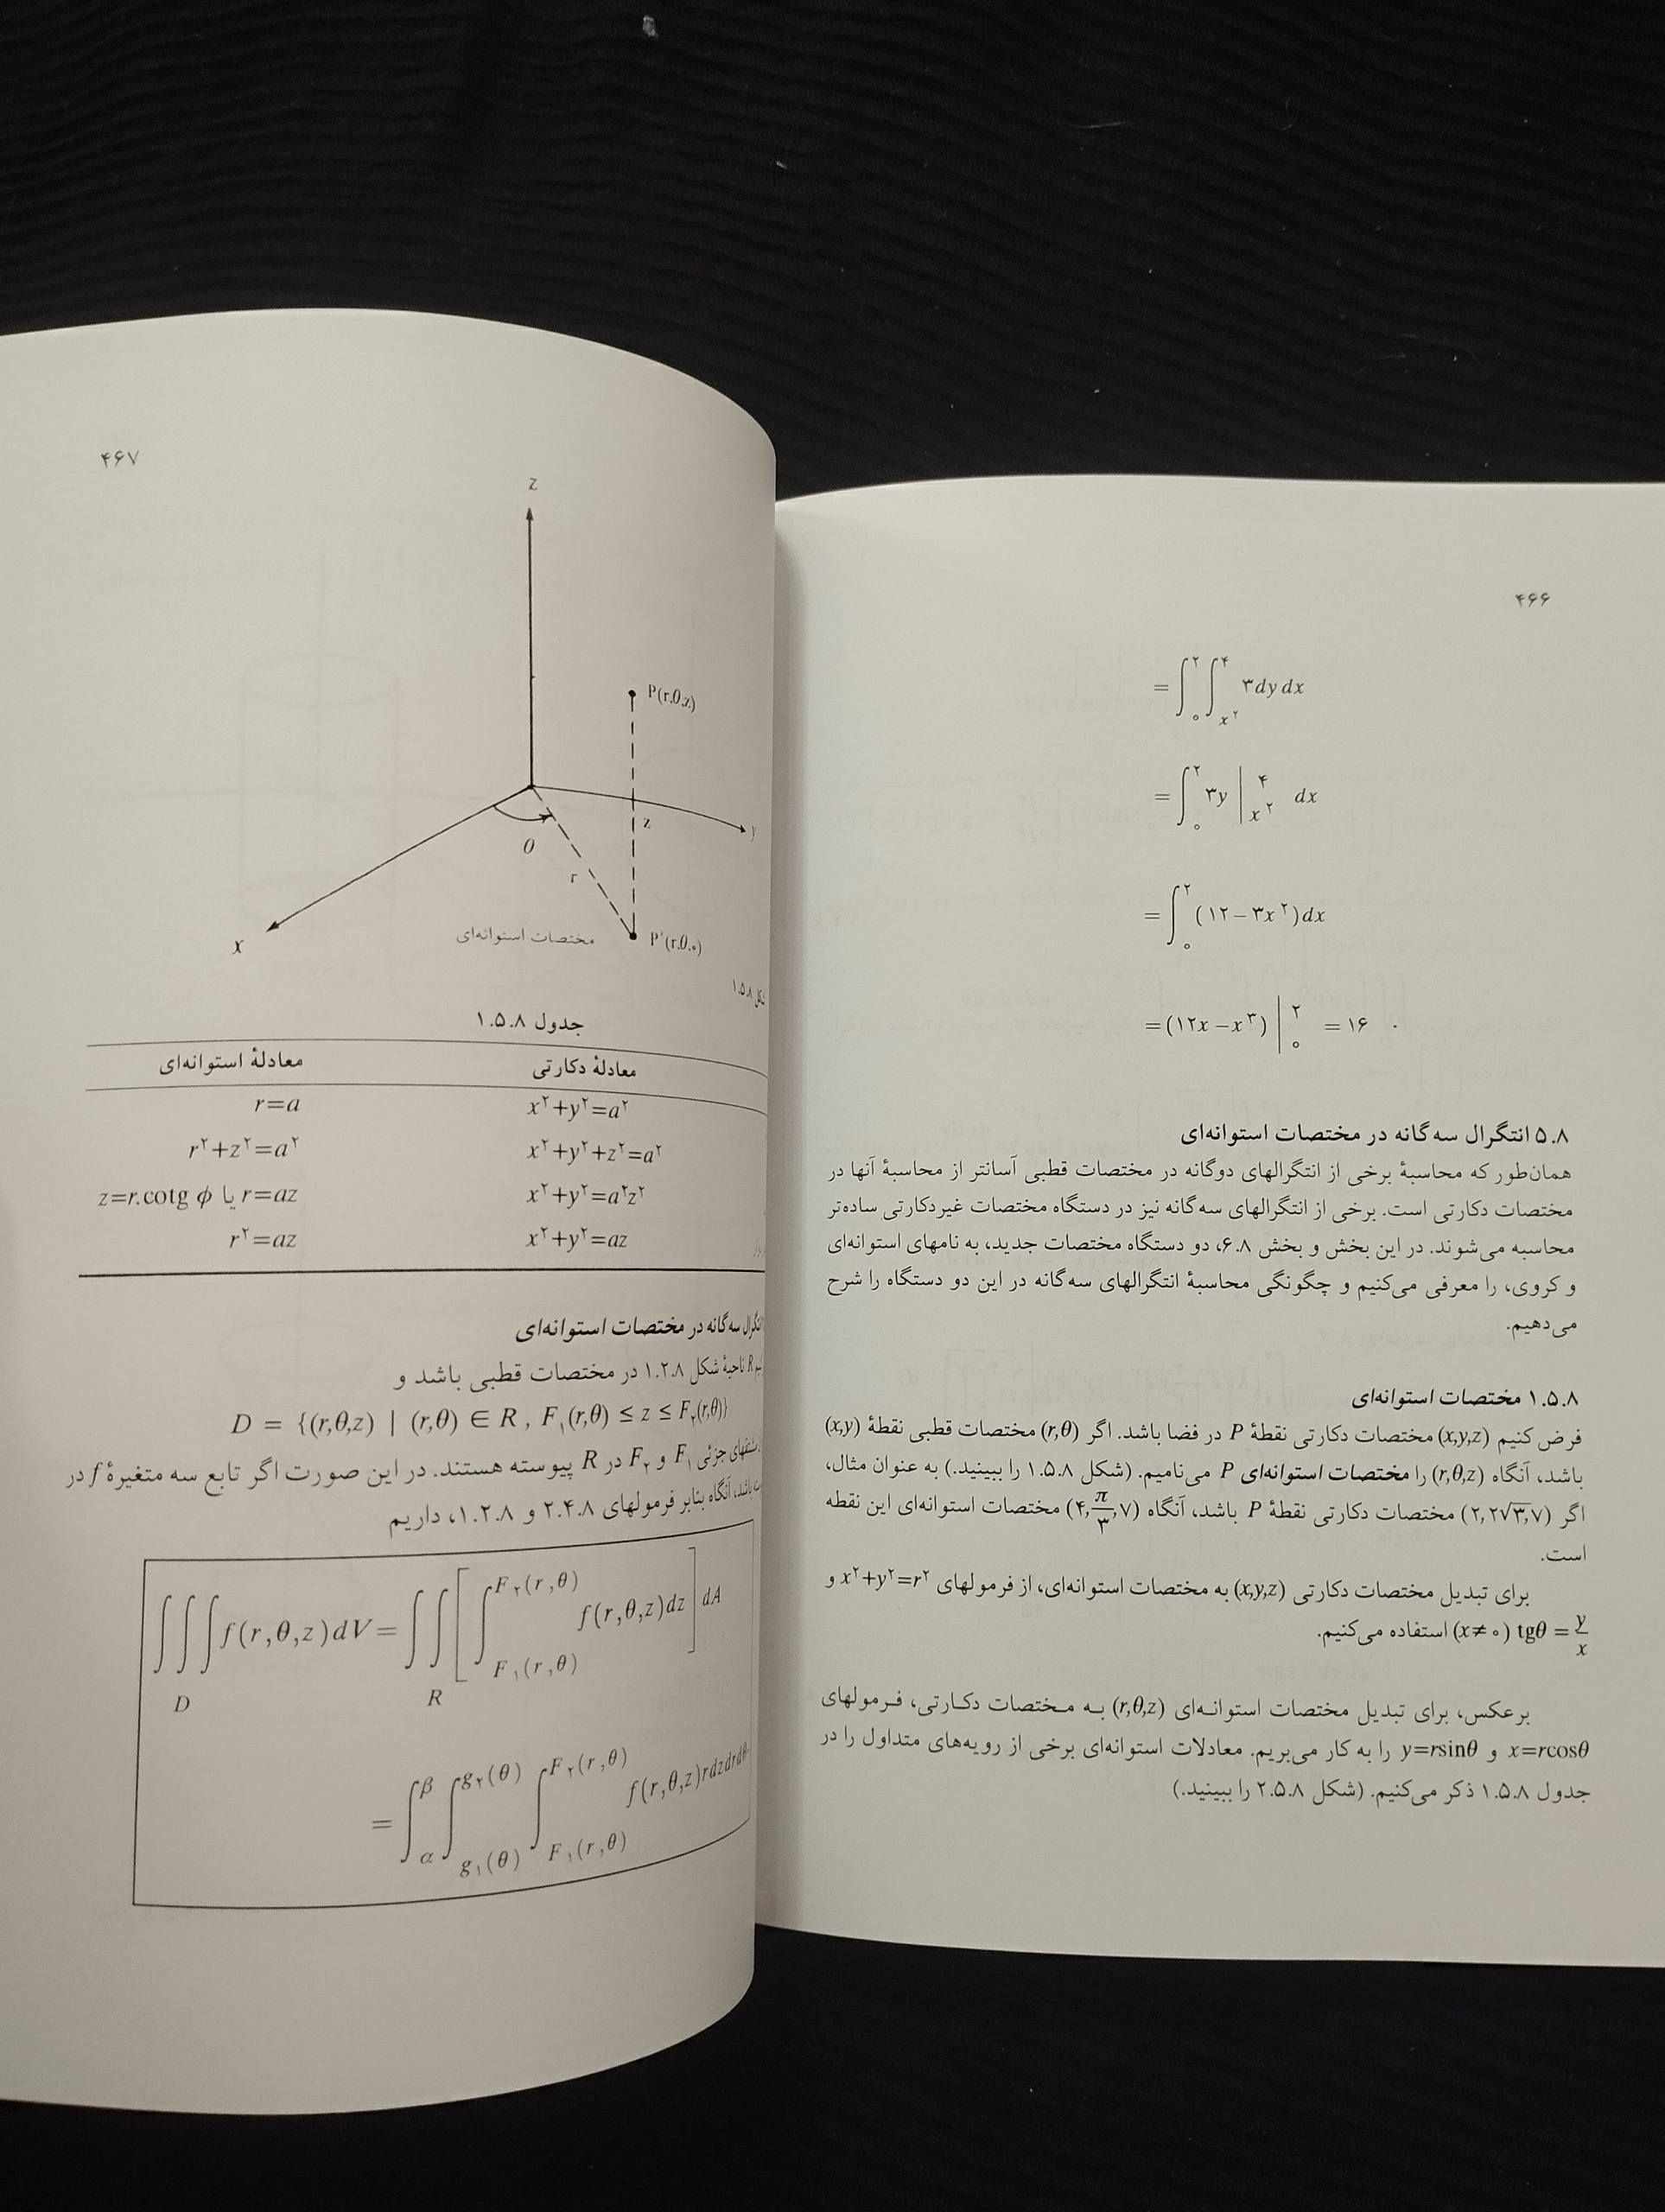 ۴۶۶
= ∫_۰^۲ ∫_{x^۲}^۴ ۳dy dx
= ∫_۰^۲ ۳y |_{x^۲}^۴ dx
= ∫_۰^۲ (۱۲−۳x^۲)dx
=(۱۲x−x^۳) |_۰^۲ =۱۶ .
۵.۸ انتگرال سه‌گانه در مختصات استوانه‌ای
همان‌طور که محاسبهٔ برخی از انتگرالهای دوگانه در مختصات قطبی آسانتر از محاسبهٔ آنها در
مختصات دکارتی است. برخی از انتگرالهای سه‌گانه نیز در دستگاه مختصات غیردکارتی ساده‌تر
محاسبه می‌شوند. در این بخش و بخش ۶.۸، دو دستگاه مختصات جدید، به نامهای استوانه‌ای
و کروی، را معرفی می‌کنیم و چگونگی محاسبهٔ انتگرالهای سه‌گانه در این دو دستگاه را شرح
می‌دهیم.
۱.۵.۸ مختصات استوانه‌ای
فرض کنیم (x,y,z) مختصات دکارتی نقطهٔ P در فضا باشد. اگر (r,θ) مختصات قطبی نقطهٔ (x,y)
باشد، آنگاه (r,θ,z) را مختصات استوانه‌ای P می‌نامیم. (شکل ۱.۵.۸ را ببینید.) به عنوان مثال،
اگر (۲,۲√۳,۷) مختصات دکارتی نقطهٔ P باشد، آنگاه (۴,π/۳,۷) مختصات استوانه‌ای این نقطه
است.
برای تبدیل مختصات دکارتی (x,y,z) به مختصات استوانه‌ای، از فرمولهای x^۲+y^۲=r^۲ و
tgθ = y/x (x≠۰) استفاده می‌کنیم.
برعکس، برای تبدیل مختصات استوانه‌ای (r,θ,z) به مختصات دکارتی، فرمولهای
x=rcosθ و y=rsinθ را به کار می‌بریم. معادلات استوانه‌ای برخی از رویه‌های متداول را در
جدول ۱.۵.۸ ذکر می‌کنیم. (شکل ۲.۵.۸ را ببینید.)
۴۶۷
z
P(r,θ,z)
z
θ
r
x
P'(r,θ,۰)
مختصات استوانه‌ای
شکل ۱.۵.۸
جدول ۱.۵.۸
معادلهٔ دکارتی معادلهٔ استوانه‌ای
x^۲+y^۲=a^۲ r=a
x^۲+y^۲+z^۲=a^۲ r^۲+z^۲=a^۲
x^۲+y^۲=a^۲z^۲ r=az یا z=r.cotg ϕ
x^۲+y^۲=az r^۲=az
انتگرال سه‌گانه در مختصات استوانه‌ای
R ناحیهٔ شکل ۱.۲.۸ در مختصات قطبی باشد و
D = {(r,θ,z) | (r,θ) ∈ R , F_۱(r,θ) ≤ z ≤ F_۲(r,θ)}
جزئی F_۱ و F_۲ در R پیوسته هستند. در این صورت اگر تابع سه متغیرهٔ f در
باشد، آنگاه بنابر فرمولهای ۲.۴.۸ و ۱.۲.۸، داریم
∫∫∫_D f(r,θ,z)dV= ∫∫_R [∫_{F_۱(r,θ)}^{F_۲(r,θ)} f(r,θ,z)dz] dA
= ∫_α^β ∫_{g_۱(θ)}^{g_۲(θ)} ∫_{F_۱(r,θ)}^{F_۲(r,θ)} f(r,θ,z)rdzdrdθ.